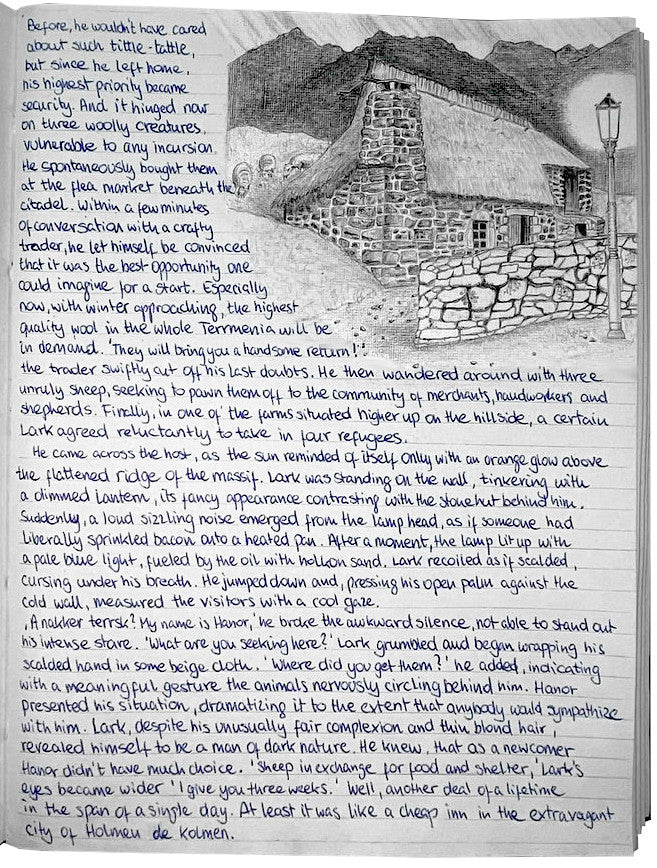 Before, he wouldn't have cared
about such tittle-tattle,
but since he left home,
his highest priority became
security. And it hinged now
on three woolly creatures,
vulnerable to any incursion.
He spontaneously bought them
at the flea market beneath the
citadel. Within a few minutes
of conversation with a crafty
trader, he let himself be convinced
that it was the best opportunity one
could imagine for a start. Especially
now, with winter approaching, the highest
quality wool in the whole Terrmenia will be
in demand. 'They will bring you a handsome return!'
the trader swiftly cut off his last doubts. He then wandered around with three
unruly sheep, seeking to pawn them off to the community of merchants, handworkers and
shepherds. Finally, in one of the farms situated higher up on the hillside, a certain
Lark agreed reluctantly to take in four refugees.
He came across the host, as the sun reminded of itself only with an orange glow above
the flattened ridge of the massif. Lark was standing on the wall, tinkering with
a dimmed lantern, its fancy appearance contrasting with the stone hut behind him.
Suddenly, a loud sizzling noise emerged from the lamp head, as if someone had
liberally sprinkled bacon onto a heated pan. After a moment, the lamp lit up with
a pale blue light, fueled by the oil with hollon sand. Lark recoiled as if scalded,
cursing under his breath. He jumped down and, pressing his open palm against the
cold wall, measured the visitors with a cool gaze.
'A nakker terrsk? My name is Hanor,' he broke the awkward silence, not able to stand out
his intense stare. 'What are you seeking here?' Lark grumbled and began wrapping his
scalded hand in some beige cloth. 'Where did you get them?' he added, indicating
with a meaningful gesture the animals nervously circling behind him. Hanor
presented his situation, dramatizing it to the extent that anybody would sympathize
with him. Lark, despite his unusually fair complexion and thin blond hair,
revealed himself to be a man of dark nature. He knew, that as a newcomer
Hanor didn't have much choice. 'Sheep in exchange for food and shelter,' Lark's
eyes became wider 'I give you three weeks.' Well, another deal of a lifetime
in the span of a single day. At least it was like a cheap inn in the extravagant
City of Holmen de Kolmen.